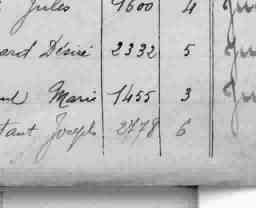 Jules 1600 4 Ju
ard Désiré 2332 5 Ju
Marie 1455 3 Ju
tant Joseph 2778 6